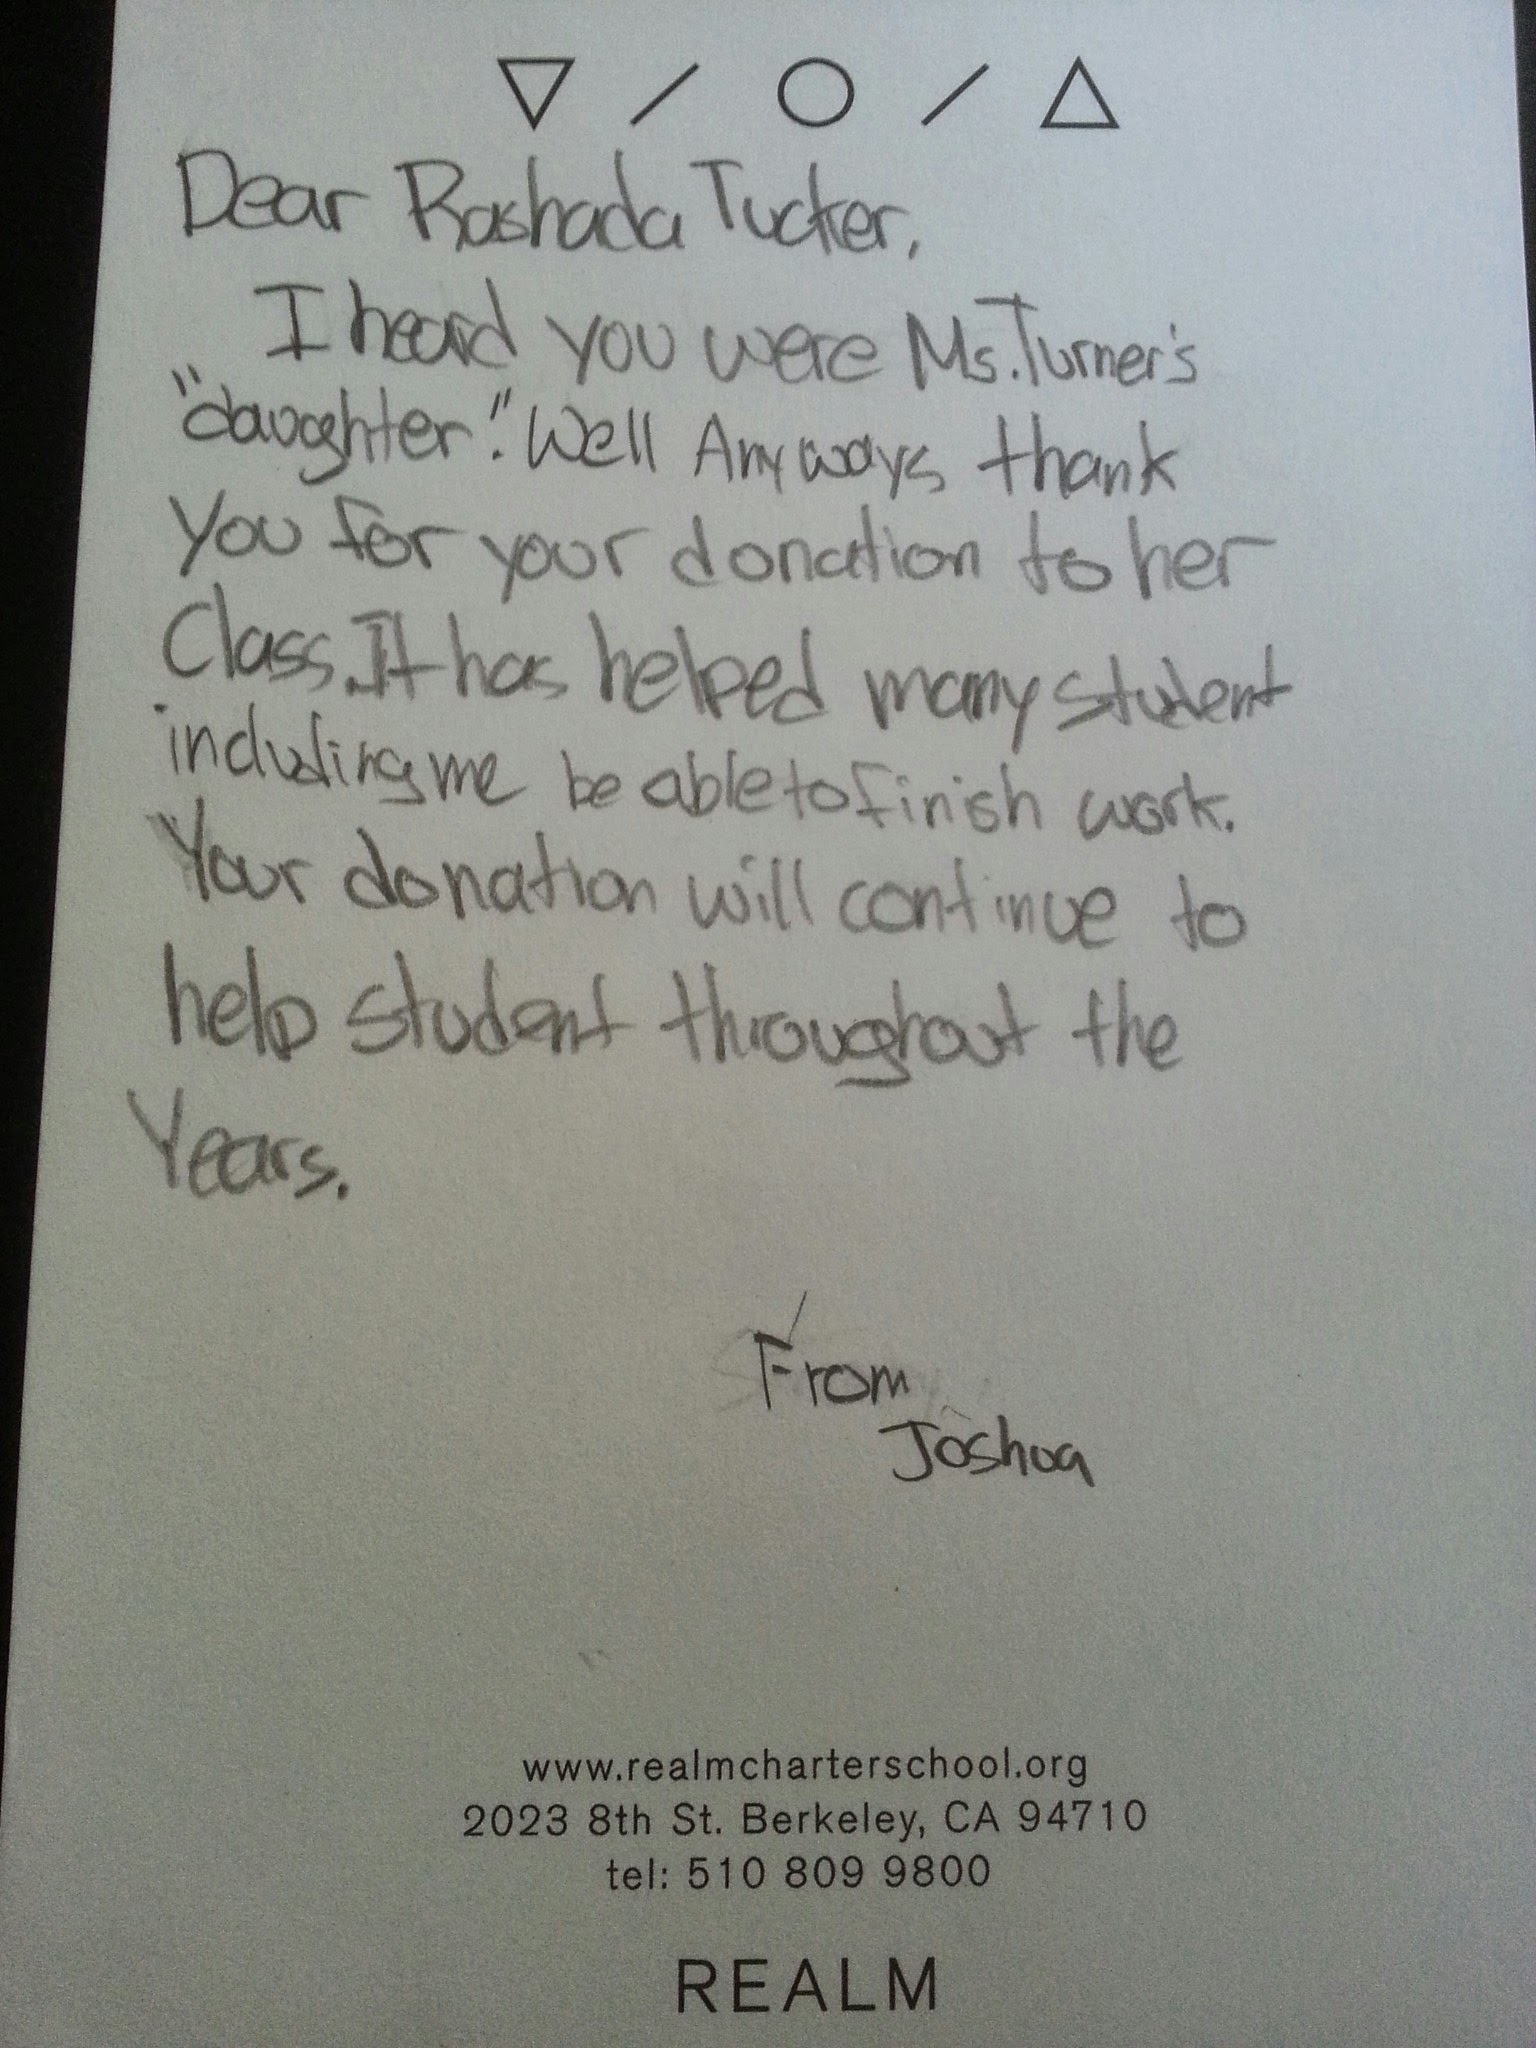 Dear Rashada Tucker,
I heard you were Ms. Turner's
"daughter". Well Anyways thank
you for your donation to her
Class. It has helped many student
including me be able to finish work.
Your donation will continue to
help student throughout the
Years.
From
Joshua
www.realmcharterschool.org
2023 8th St. Berkeley, CA 94710
tel: 510 809 9800
REALM